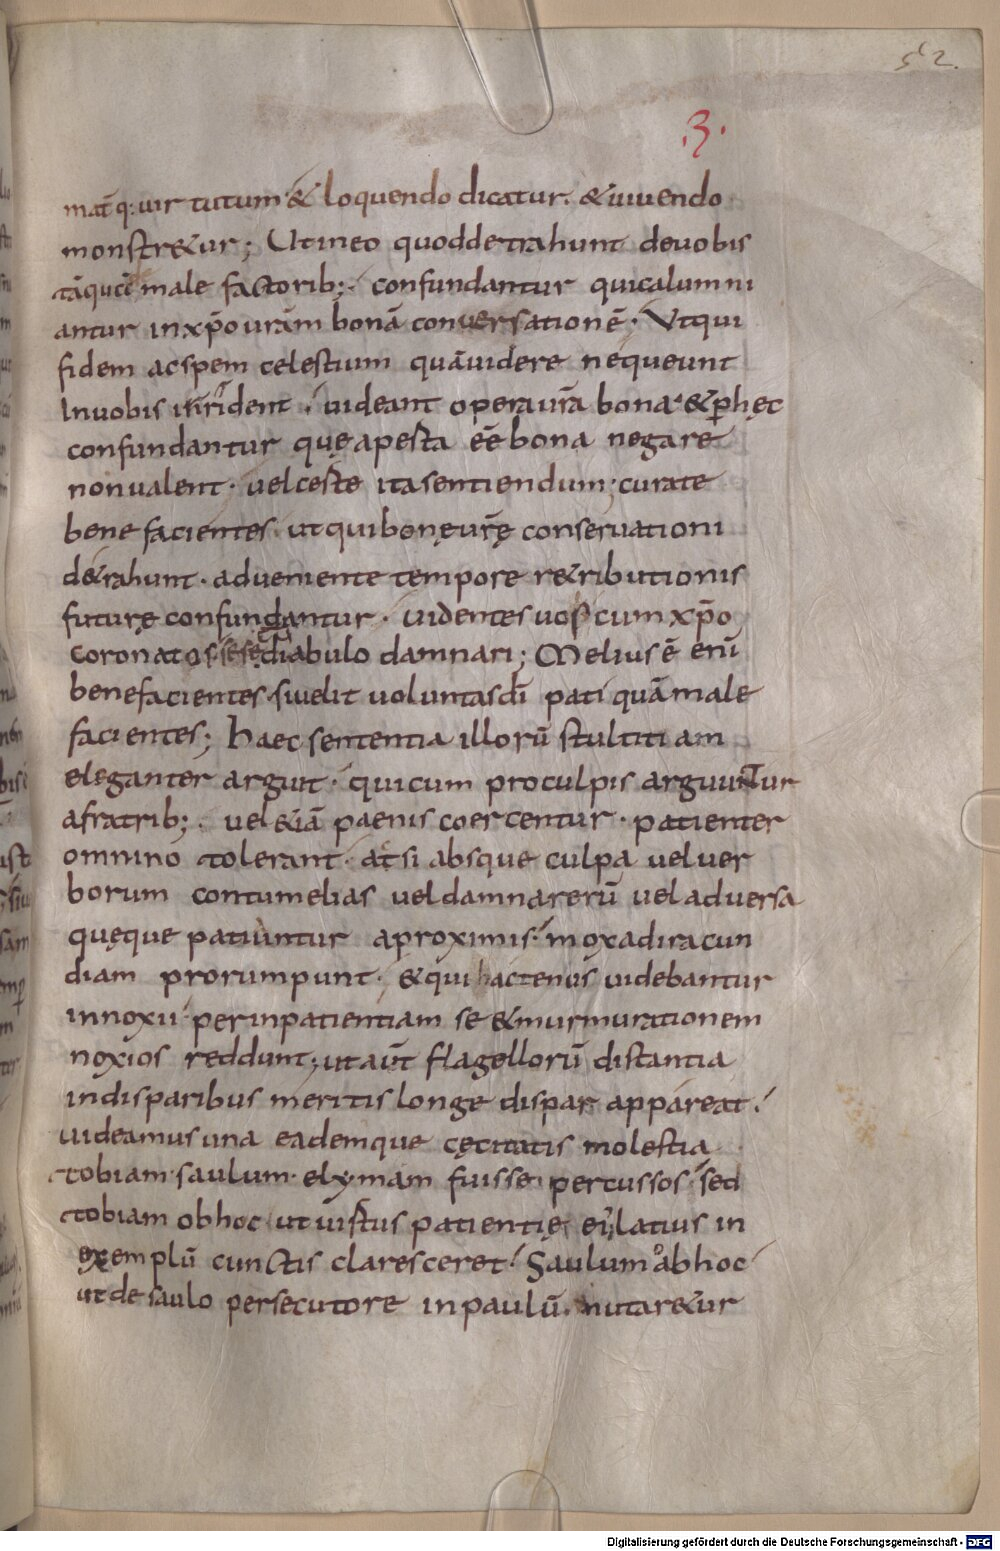 52.
.3.
mat̄q: uirtutum & loquendo dicatur. & uiuendo
monstr&ur; Ut in eo quod detrahunt de uobis
tāquā male factorib;. confundantur qui calumni
antur in xp̄o urām bonā conuersationē. Ut qui
fidem ac spem celestium quā uidere nequeunt
In uobis irrident. uideant opera ur̄a bona. & p̱ hęc
confundantur quę aperta eē bona negare
non ualent. uel certe ita sentiendum; curate
bene facientes. ut qui bonę ur̄ę conseruationi
d&rahunt. adueniente tempore r&ributionis
futurę confundantur. uidentes uos cum xp̄o
coronatos sese diabulo damnari; Melius ē enī
benefacientes. si uelit uoluntas dī pati quā male
facientes; Haec sententia illorū stultitiam
eleganter arguit. qui cum pro culpis arguuntur
a fratrib;. uel &iā paenis coercentur. patienter
omnino tolerant. at si absque culpa uel uer
borum contumelias uel damna rerū uel aduersa
quęque patiuntur a proximis. mox ad iracun
diam prorumpunt. & qui hactenus uidebantur
innoxii per inpatientiam se & murmurationem
noxios reddunt; ut aūt flagellorū distantia
in disparibus meritis longe dispar appareat.
uideamus una eademque cęcitatis molestia
tobiam. saulum. elymam fuisse percussos. sed
tobiam ob hoc ut uirtus patientię ei; latius in
exemplū cunctis claresceret. Saulum ob hoc
ut de saulo persecutore in paulū. mutar&ur
Digitalisierung gefördert durch die Deutsche Forschungsgemeinschaft - DFG